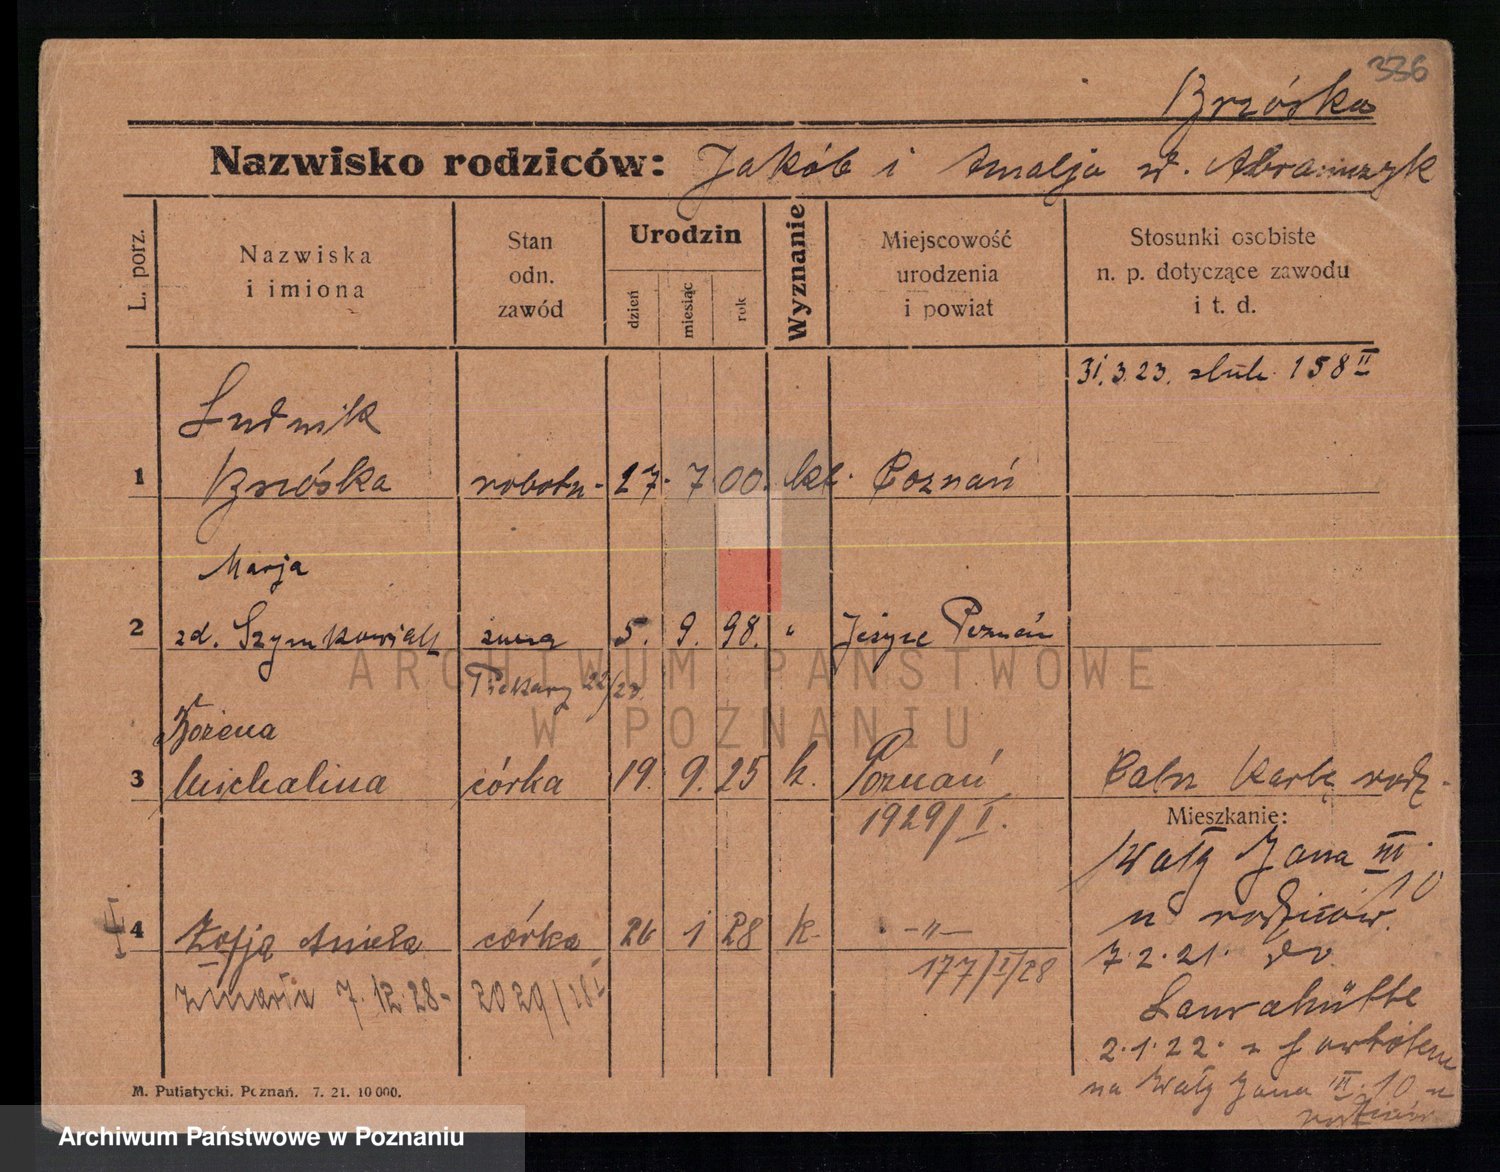 336
Brzóska
Nazwisko rodziców: Jakób i Amalja ur. Abramczyk
L. porz.
Nazwiska
i imiona
Stan
odn.
zawód
Urodzin
dzień
miesiąc
rok
Wyznanie
Miejscowość
urodzenia
i powiat
Stosunki osobiste
n. p. dotyczące zawodu
i t. d.
31.3.23. ślub. 158 II
Ludwik
1 Brzóska robotn. 27. 7. 00. kat. Poznań
Marja
2 zd. Szymkowiak żona 5. 9. 98. " Jeżyce Poznań
Piekary 22/23
Bożena
3 Michalina córka 19. 9. 25 k. Poznań
1929/I.
Mieszkanie:
Wały Jana III. 10
u rodziców.
7.2.21. do
Laurahütte
2.1.22. z
na Wały Jana III. 10 u
rodziców
4 Zofja Aniela córka 26 1 28 k. -"-
177/I/28
zmarła 7.12.28- 2029/
M. Putiatycki. Poznań. 7. 21. 10 000.
ARCHIWUM PAŃSTWOWE
W POZNANIU
Archiwum Państwowe w Poznaniu